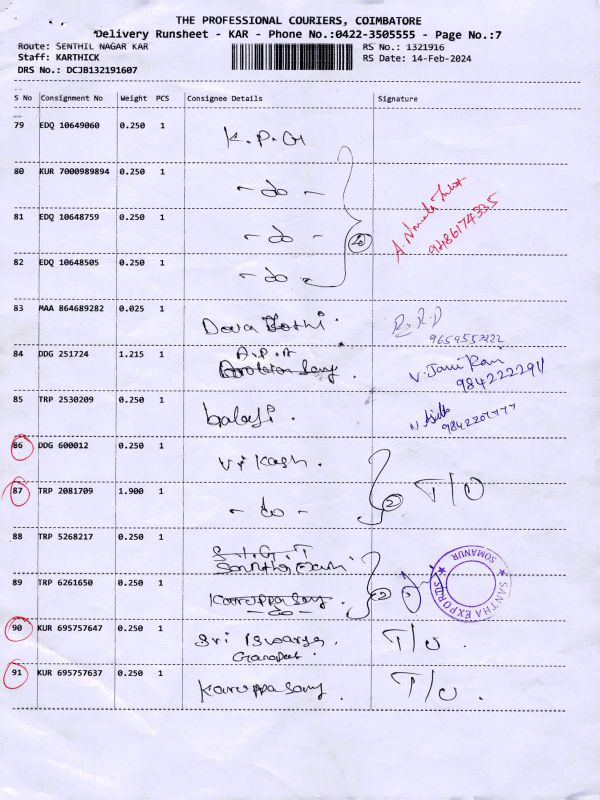 THE PROFESSIONAL COURIERS, COIMBATORE
Delivery Runsheet - KAR - Phone No.:0422-3505555 - Page No.:7
Route: SENTHIL NAGAR KAR
RS No.: 1321916
Staff: KARTHICK
RS Date: 14-Feb-2024
DRS No.: DCJB132191607
S No Consignment No Weight PCS Consignee Details Signature
79 EDQ 10649060 0.250 1 K.P.G
80 KUR 7000989894 0.250 1 - do -
81 EDQ 10648759 0.250 1 - do -
9486174335
82 EDQ 10648505 0.250 1 - do -
83 MAA 864689282 0.025 1
84 DDG 251724 1.215 1 A.P.A
85 TRP 2530209 0.250 1 balaji.
86 DDG 600012 0.250 1 Vikash.
87 TRP 2081709 1.900 1 - do - 2 T/O
88 TRP 5268217 0.250 1 S.H.G.T
89 TRP 6261650 0.250 1 Karuppasamy 2
- do -
SANTHA EXPORTS
SOMANUR
90 KUR 695757647 0.250 1 Sri Iswarya. T/O.
91 KUR 695757637 0.250 1 Karuppasamy. T/O.